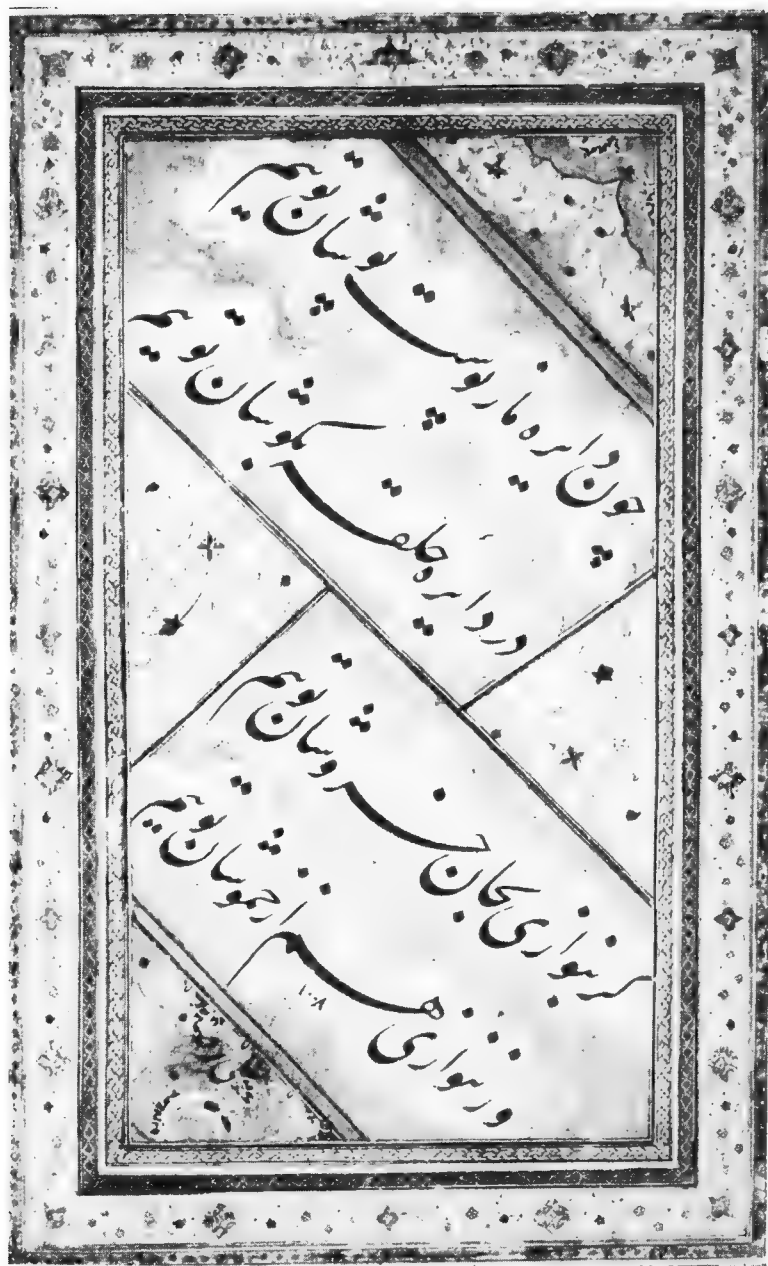 چون دایره ما ز پوست پوشان توایم
در دایره حلقه بگوشان توایم
گر بنوازی بجان خروشان توایم
ور ننوازی هم از خموشان توایم
۱۰۰۸